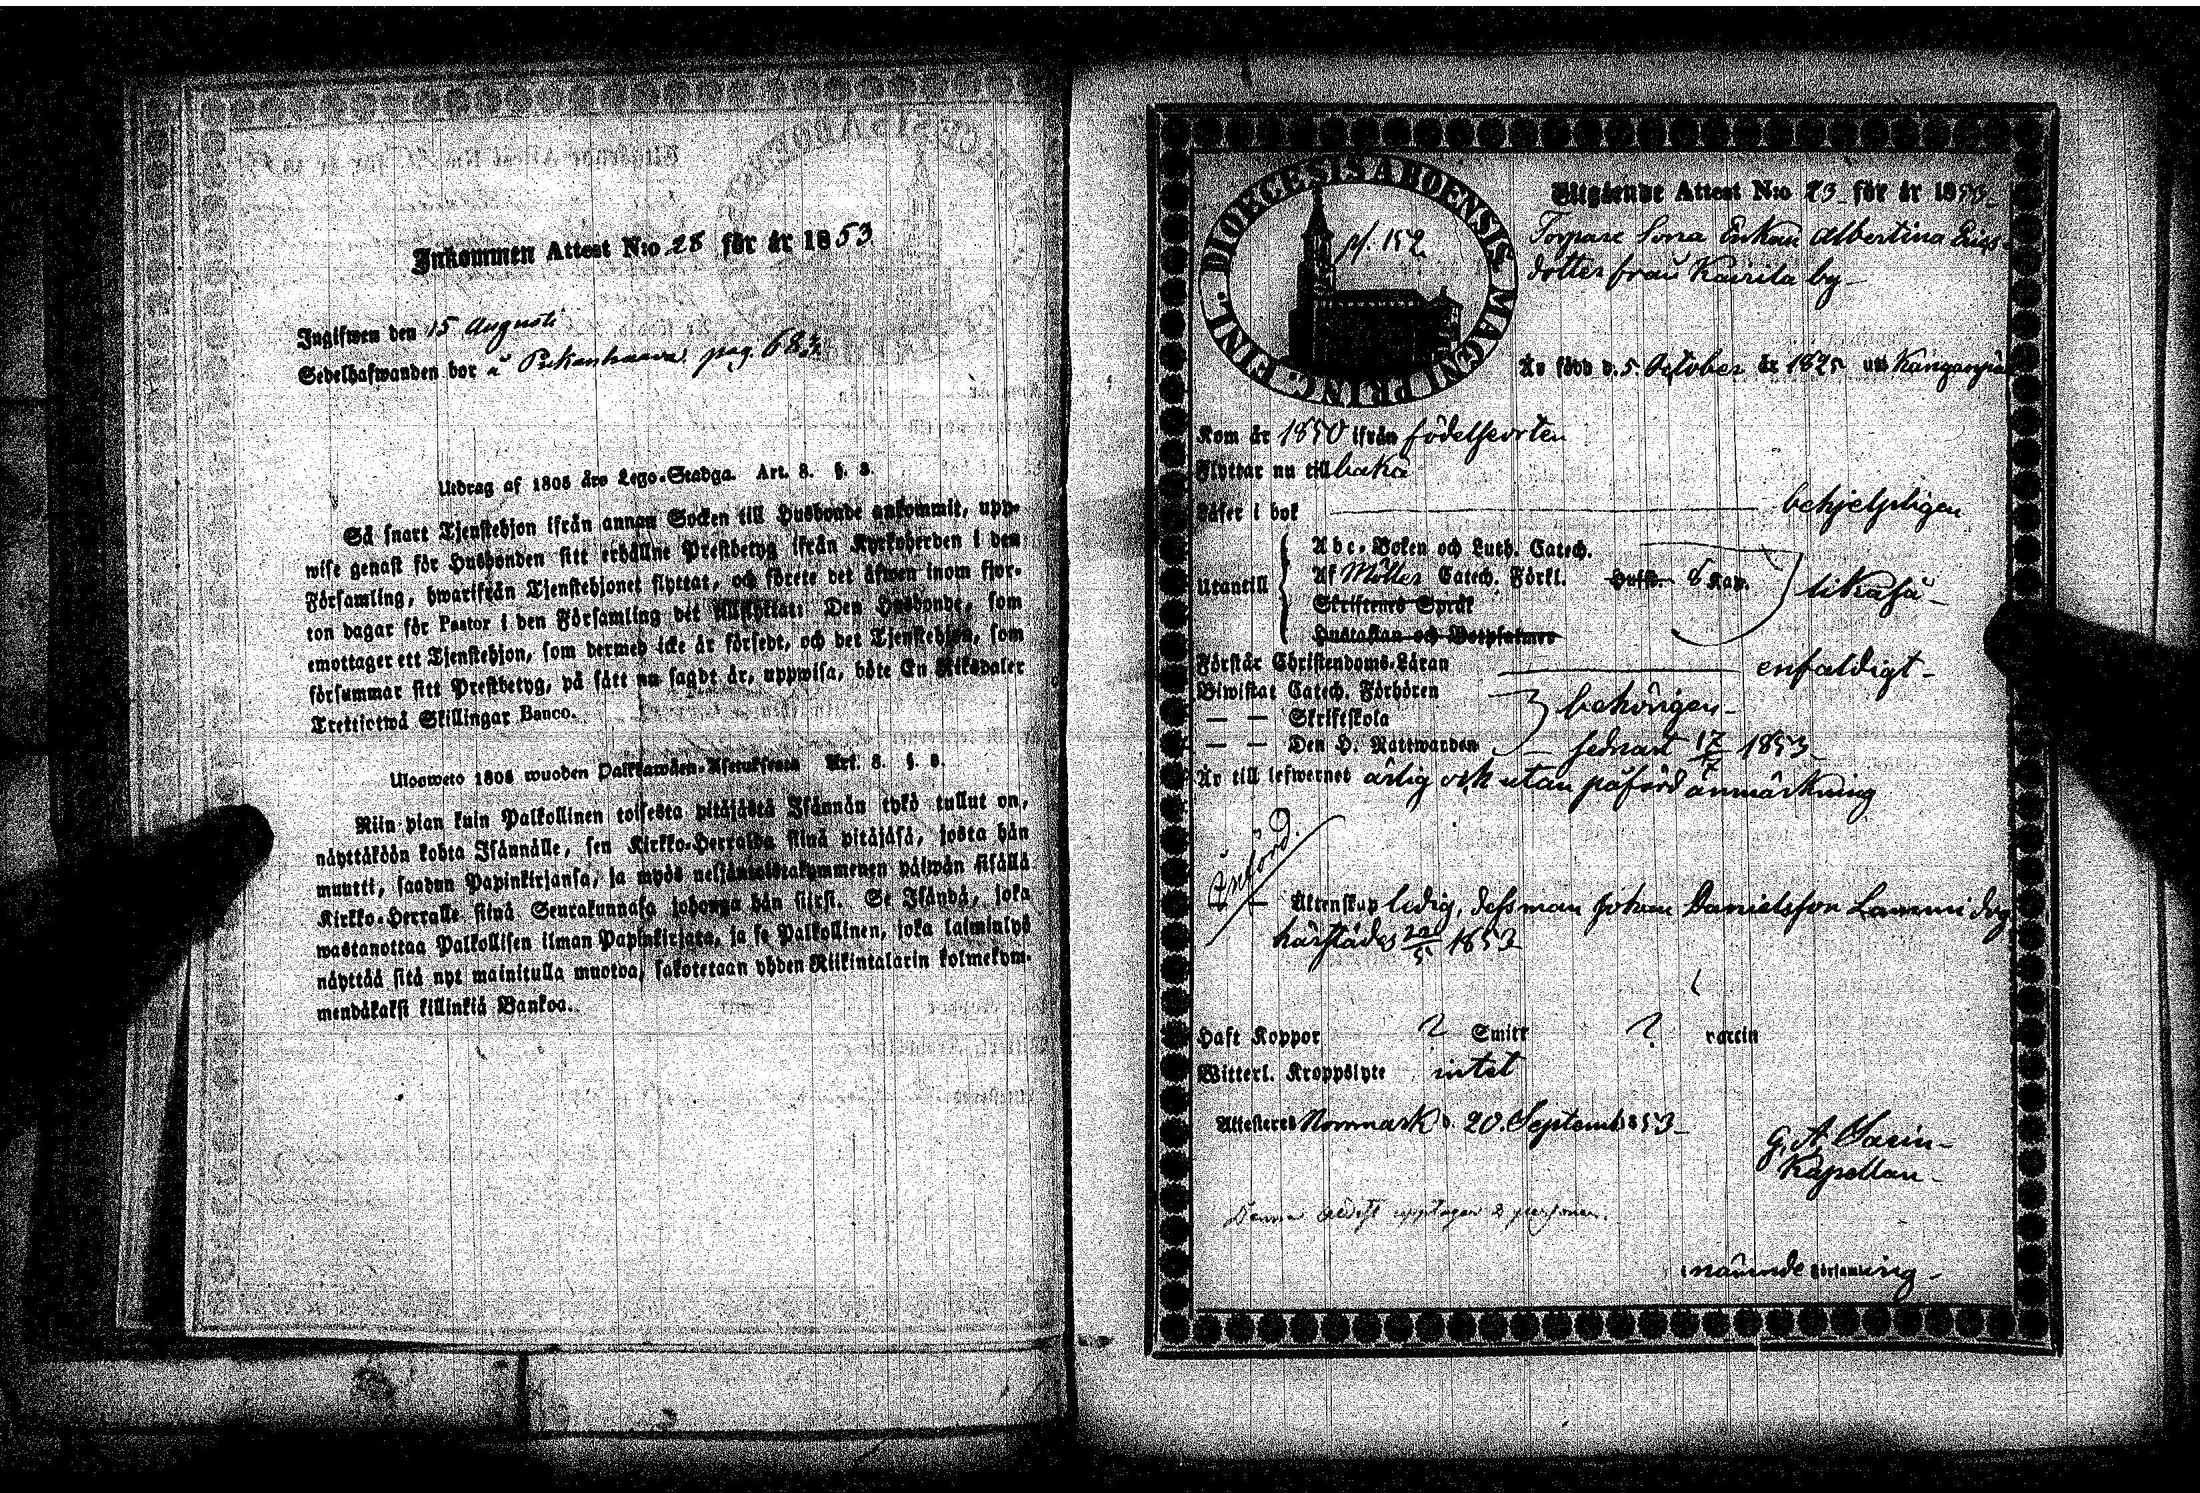 Inkommen Attest N:o 28 för år 1853
Ingifwen den 15 Augusti
Sedelhafwanden bor å Pukanhaara pag. 682.
Utdrag af 1805 års Lego-Stadga. Art. 8. §. 8.
Så snart Tjenstehjon ifrån annan Socken till Husbonde ankommit, upp-
wise genast för Husbonden sitt erhållne Prestbetyg ifrån Kyrkoherden i den
Församling, hwarifrån Tjenstehjonet flyttat, och förete det äfwen inom fjor-
ton dagar för Pastor i den Församling det tillflyttat: Den Husbonde, som
emottager ett Tjenstehjon, som dermed icke är försedt, och det Tjenstehjon, som
försummar sitt Prestbetyg, på sätt nu sagdt är, uppwisa, böte En Riksdaler
Trettiotwå Skillingar Banco.
Ulosweto 1805 wuoden Palkkawäen-Asetuksesta Art. 8. §. 8.
Niin pian kuin Palkollinen toisesta pitäjästä Isännän tykö tullut on,
näyttäköön kohta Isännälle, sen Kirkko-Herralda siinä pitäjäsä, josta hän
muutti, saadun Papinkirjansa, ja myös neljäntoistakymmenen päiwän sisällä
Kirkko-Herralle siinä Seurakunnasa johonga hän siirsi. Se Isändä, joka
wastanottaa Palkollisen ilman Papinkirjata, ja se Palkollinen, joka laiminlyö
näyttää sitä nyt mainitulla muotoa, sakotetaan yhden Riikintalarin kolmekym-
mendäkaksi killinkiä Bankoa.
DIOECESIS ABOENSIS MAGNI PRINC. FINL.
pf. 152
Utgående Attest N:o 23 för år 1853
Torpare Enkan Albertina Eriks-
dotter från Kairila by
Är född d. 5 October år 1825 uti Kanganpä
Kom år 1850 ifrån födelseorten
Flyttar nu tillbaka
Läser i bok behjelpligen
Utantill
Abc-Boken och Luth. Catech.
Af Möller Catech. Förkl. Hufst. 8 Kap. likaså
Skriftenes Språk
Hustaflan och Botpsalmer
Förstår Christendoms-Läran enfaldigt
Biwistat Catech. Förhören
— — Skriftskola behörigen
— — Den H. Nattwarden sednast 17/7 1853
Är till lefwernet ärlig och utan påförd anmärkning
Införd.
— — Äktenskap ledig, dess man Johan Danielsson Lammi dog
härstädes 20/5 1853
Haft Koppor ? Smitt ? vaccin
Witterl. Kroppslyte intet
Attesteras Norrmark d. 20. Septemb 1853
G. A. Sarin
Kapellan
Denna Sedel upptager 2 personer.